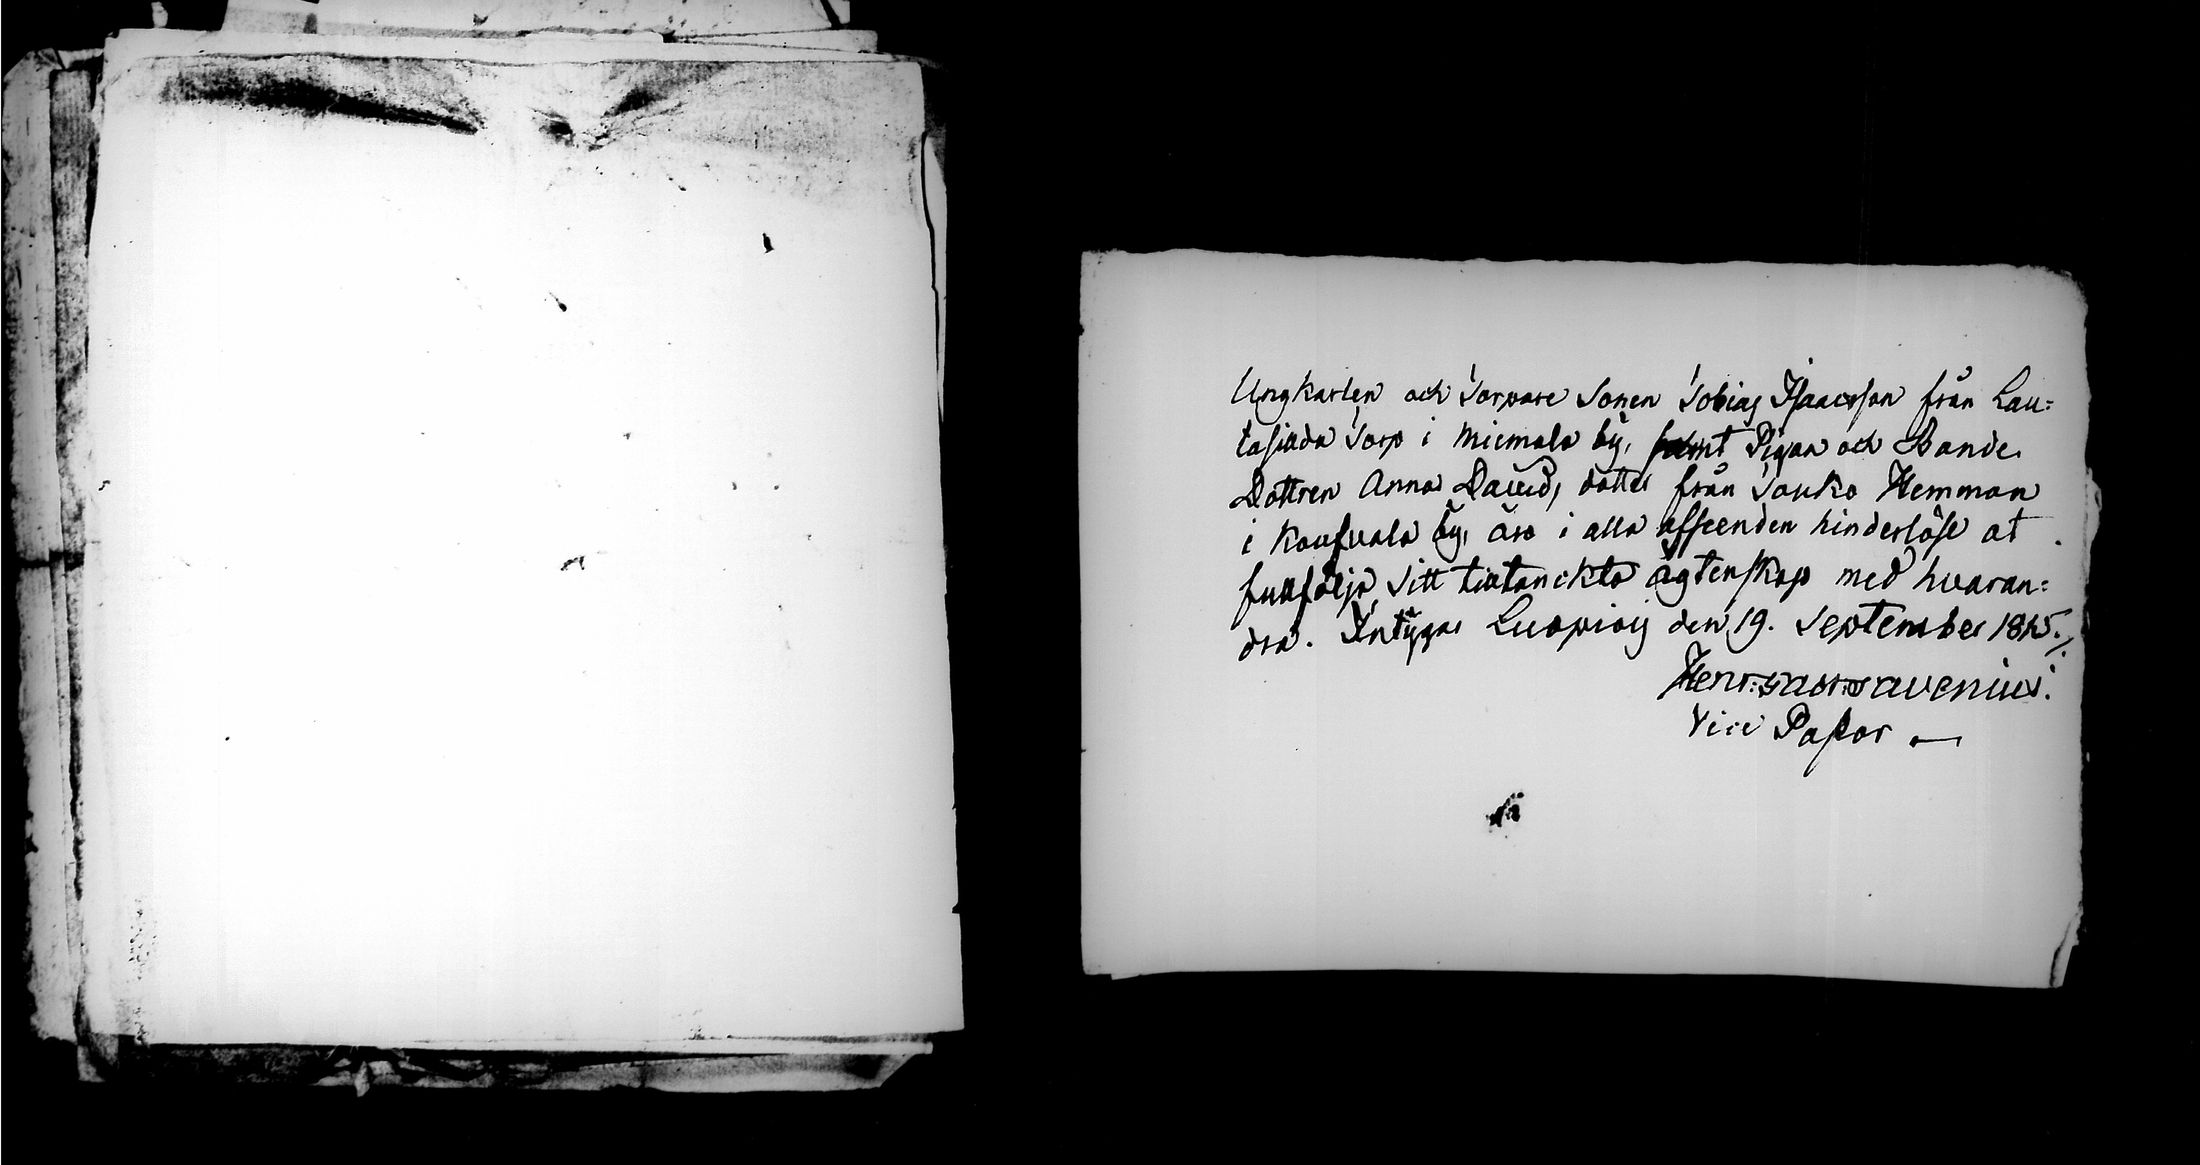 Ungkarlen och Torpare Sonen Tobias Isaacsson från Lau-
tasuda Torp i Miemala by, samt Pigan och Bonde
Dottren Anna Davids dotter från Touko Hemman
i Koufvala by, äro i alla affeenden hinderlöse at
fullfölja sitt tilltänckta ägtenskap med hvaran=
dra. Intÿgar Luopioij den 19. September 1815.
Henr: Favenius.
Vice Pastor